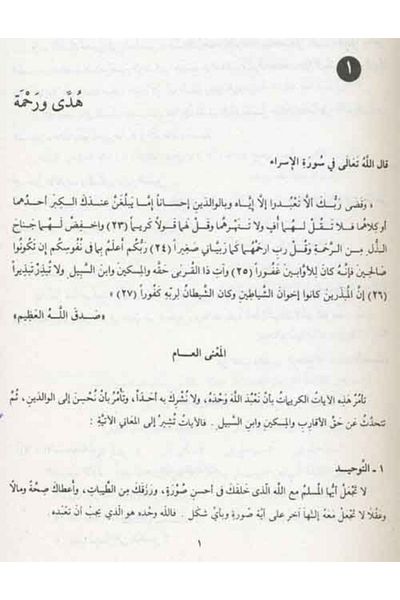 ١
هُدًى وَرَحْمَة
قال اللهُ تَعَالَى فِي سُورَةِ الإسراء
« وَقَضَى رَبُّكَ ألَّا تَعْبُدوا إلَّا إيَّاه وبالوالدينِ إحساناً إمَّا يَبلُغَنَّ عندَكَ الكِبَرَ أحدُهما
أوكِلاهُما فلا تَقُلْ لَهُما أفٍ ولا تَنْهَرْهُما وقُلْ لهُما قَولاً كَريماً (٢٣) واخفِضْ لَهُما جَناحَ
الذُّلِ مِنَ الرَّحمَةِ وقُلْ ربِّ ارحمْهُما كما رَبياني صَغيراً (٢٤) رَبُّكم أعلَمُ بِما في نُفوسِكم إن تَكُونُوا
صالحينَ فإنَّهُ كانَ للأوَّابينَ غَفُوراً (٢٥) وآتِ ذا القُربى حَقَّه والمِسكينَ وابنَ السبيلِ ولا تُبذِّرْ تَبْذيراً
(٢٦) إنَّ المُبذِّرينَ كانوا إخوانَ الشياطينِ وكانَ الشيطانُ لِربِّهِ كَفوراً (٢٧) »
«صَدقَ اللهُ العَظِيم»
المَعْنى العَام
تأمُرُ هٰذِهِ الآياتُ الكريماتُ بأنْ نَعْبُدَ اللهَ وَحْدَهُ، ولا نُشْرِكَ بِه أَحَداً، وتَأمُرُ بأنْ نُحْسِنَ إلى الوالدينِ، ثُمَّ
تتحدَّثُ عن حَقِّ الأقاربِ والمِسكينِ وابنِ السبيلِ . فالآياتُ تُشيرُ إلى المعاني الآتيةِ :
١ - التَّوحيد
لا تَجْعَلْ أيُّها المُسلِمُ مع اللهِ الَّذي خلقكَ في أحسنِ صُورَةٍ، ورَزَقَكَ مِن الطيباتِ، وأعطاكَ صِحَّةً ومالاً
وعَقْلاً لا تَجْعَلْ مَعَهُ إلٰهاً آخرَ على أيَّةِ صُورةٍ وبأيِّ شَكلٍ . فاللهُ وحده هو الذي يجبُ أنْ تَعْبُده .
١